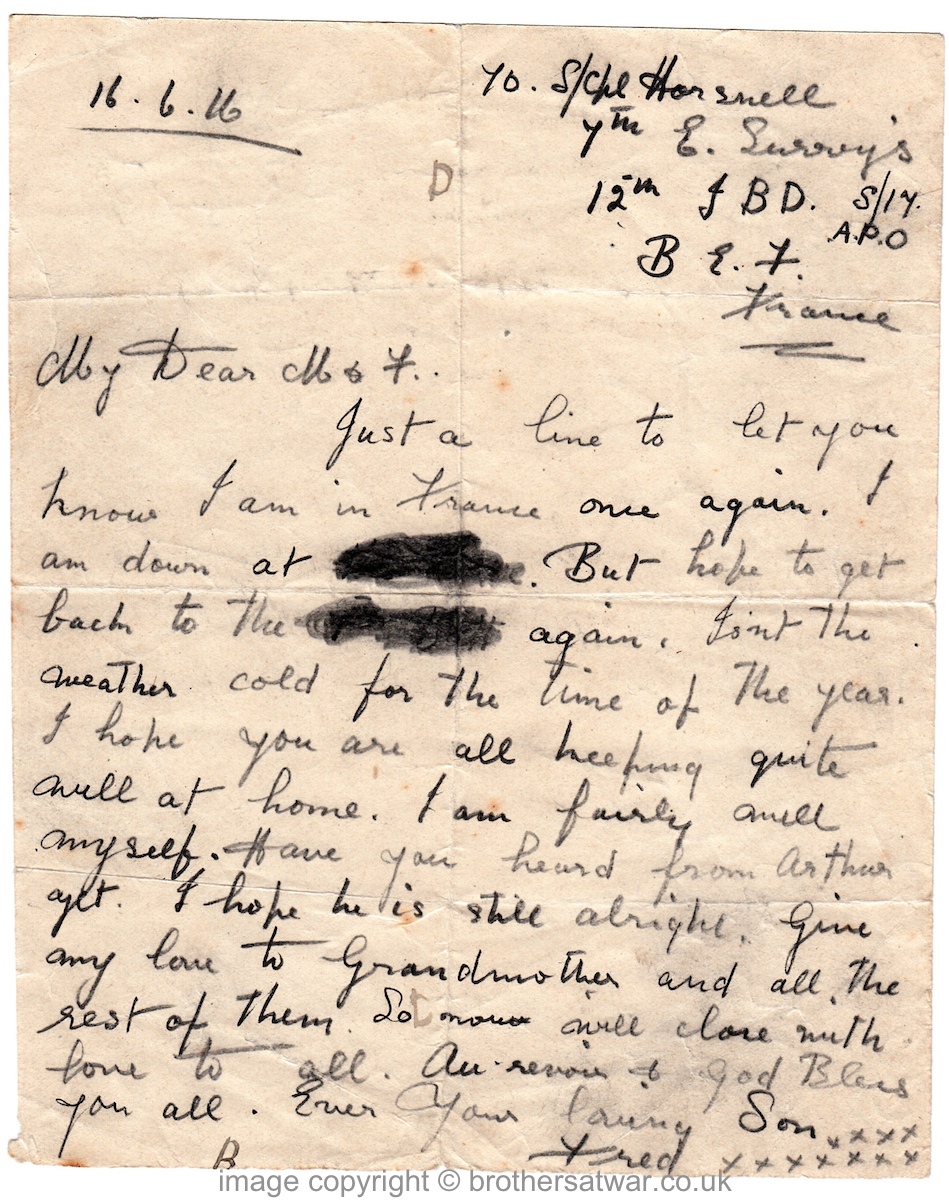 16.6.16
70. S/Cpl Horsnell
7th E. Surrey's
12th I B D. S/17.
A.P.O
B E. F.
France
D
My Dear M & F..
Just a line to let you
know I am in France once again. I
am down at . But hope to get
back to the again. Isnt the
weather cold for the time of the year.
I hope you are all keeping quite
well at home. I am fairly well
myself. Have you heard from Arthur
yet. I hope he is still alright. Give
my love to Grandmother and all the
rest of them. So now will close with
love to all. Au-revoir & God Bless
you all. Ever Your loving Son xxxx
Fred xxxxxxx
B
image copyright © brothersatwar.co.uk